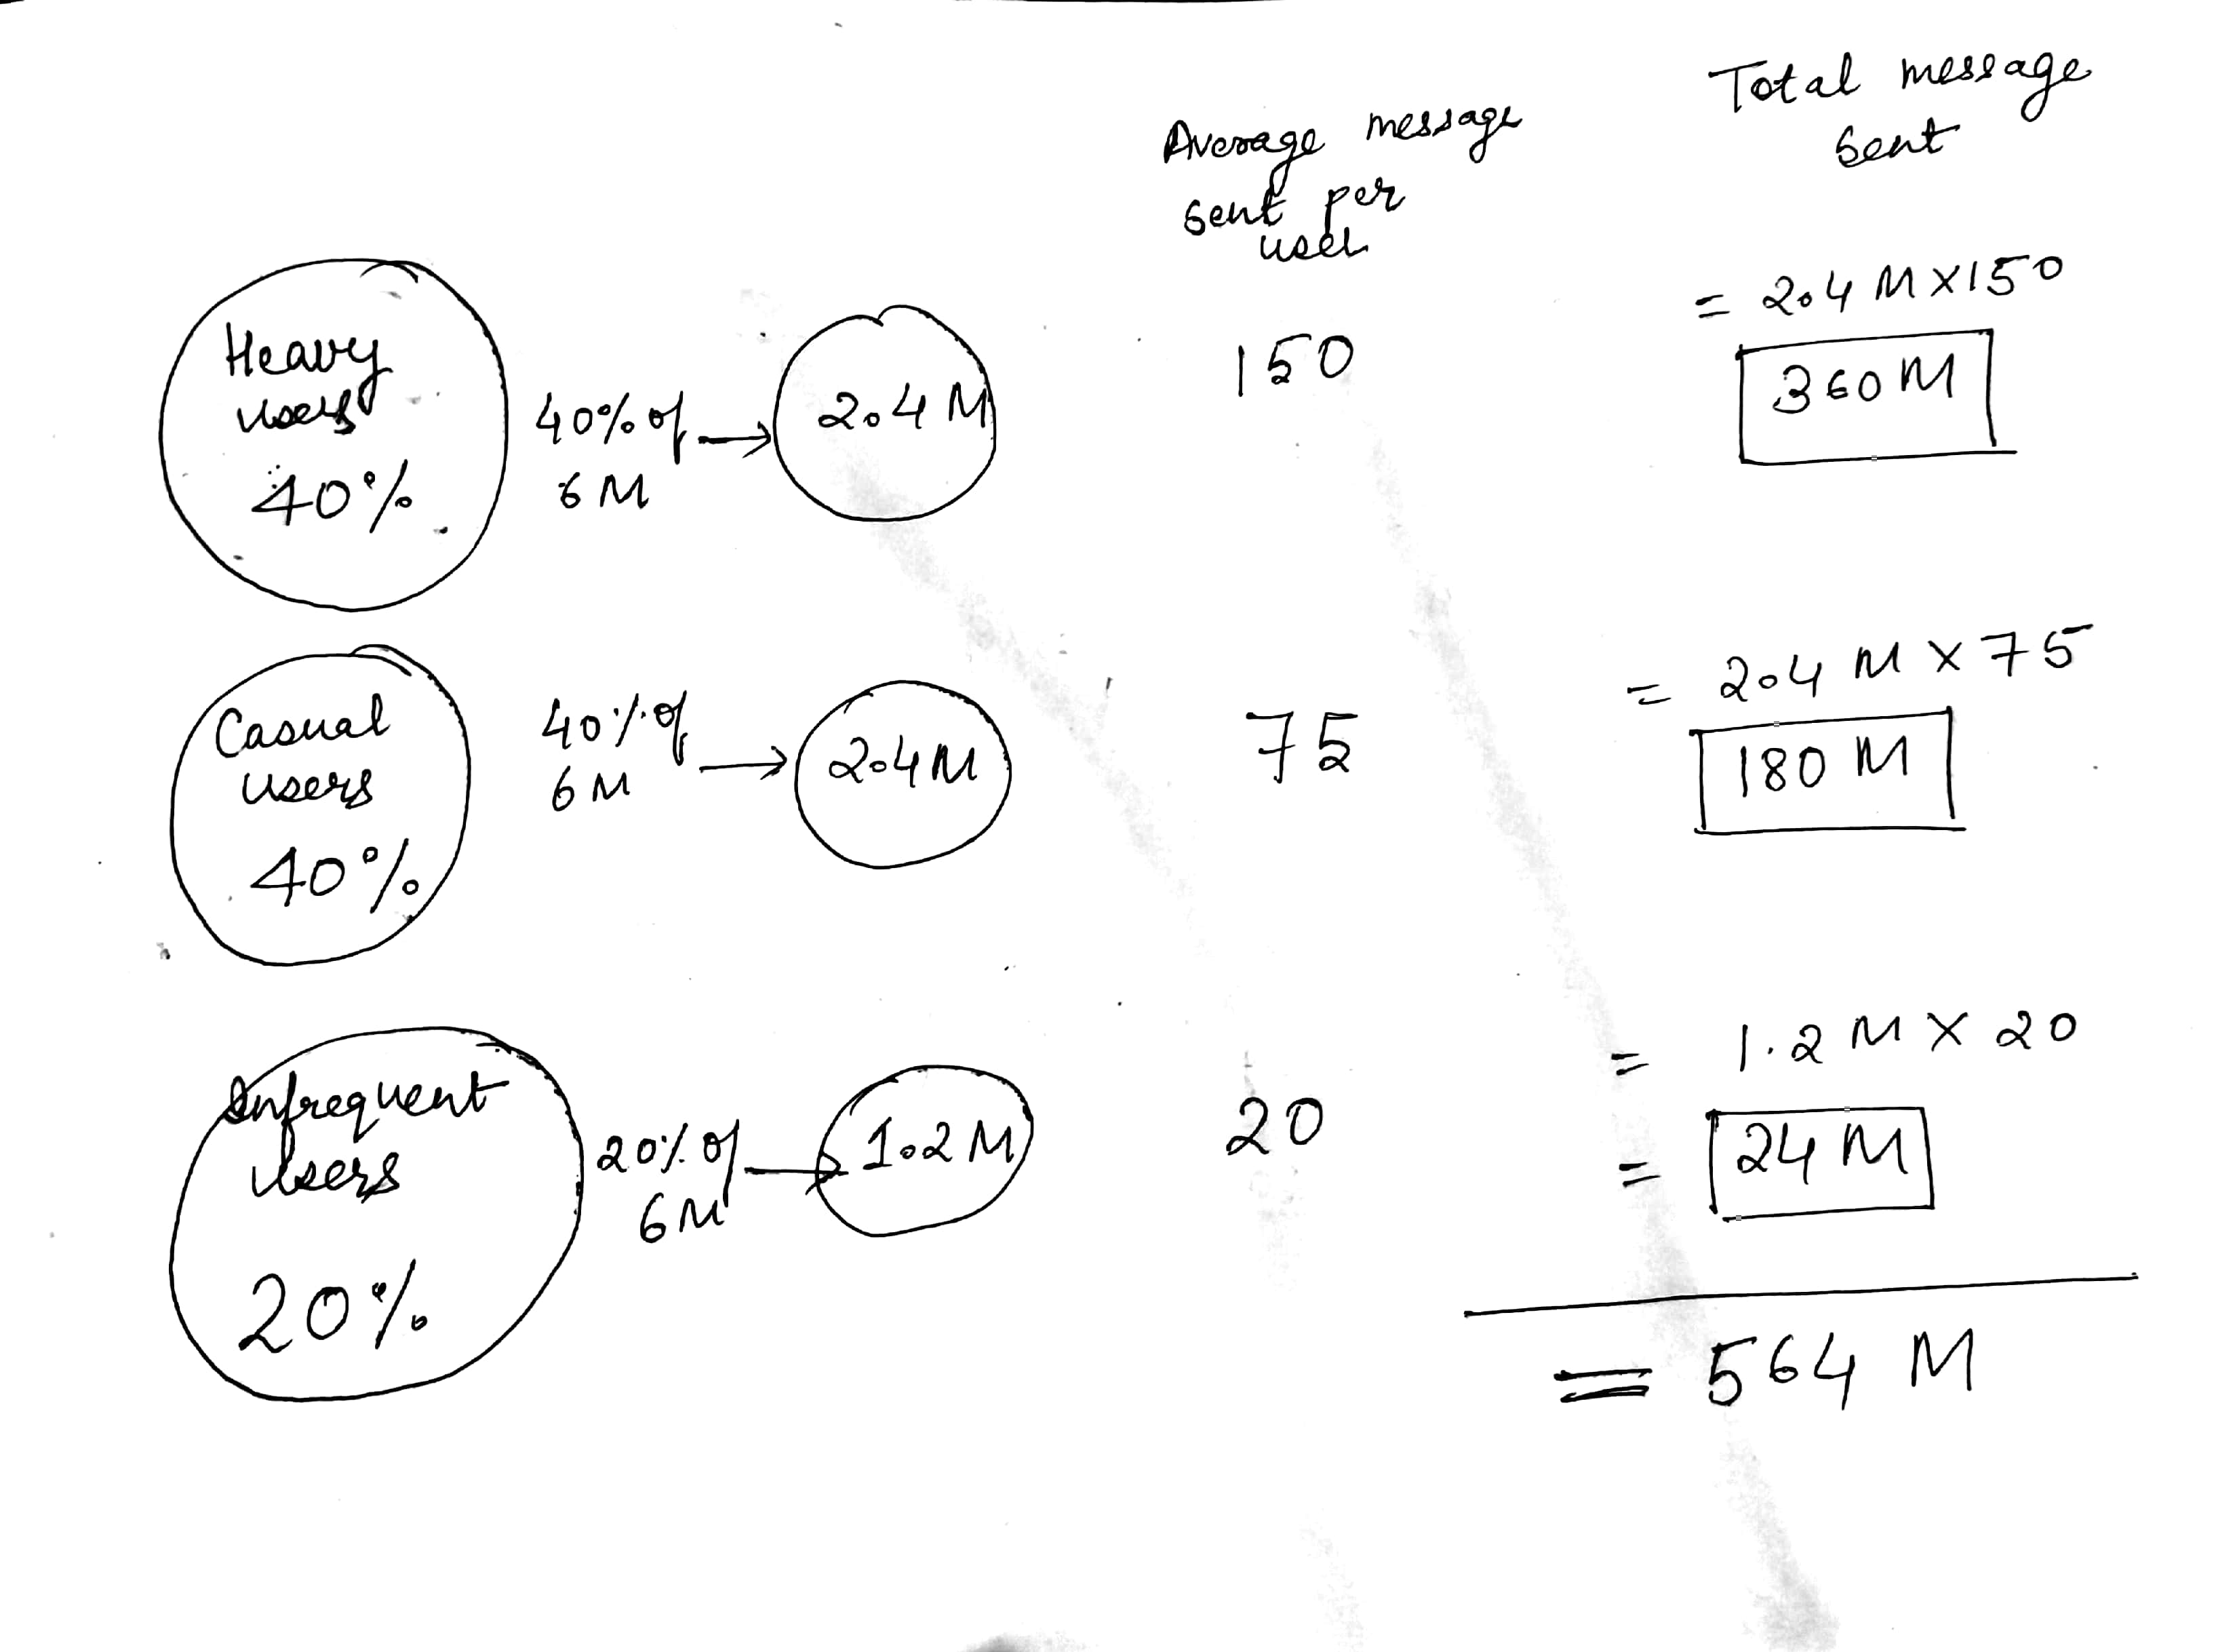 Total message
sent
Average message
sent per
user
Heavy
users
40%
40% of
6 M
2.4 M
150
= 2.4 M X 150
360 M
Casual
users
40%
40% of
6 M
2.4 M
75
= 2.4 M X 75
180 M
Infrequent
Users
20%
20% of
6 M
1.2 M
20
= 1.2 M X 20
= 24 M
= 564 M